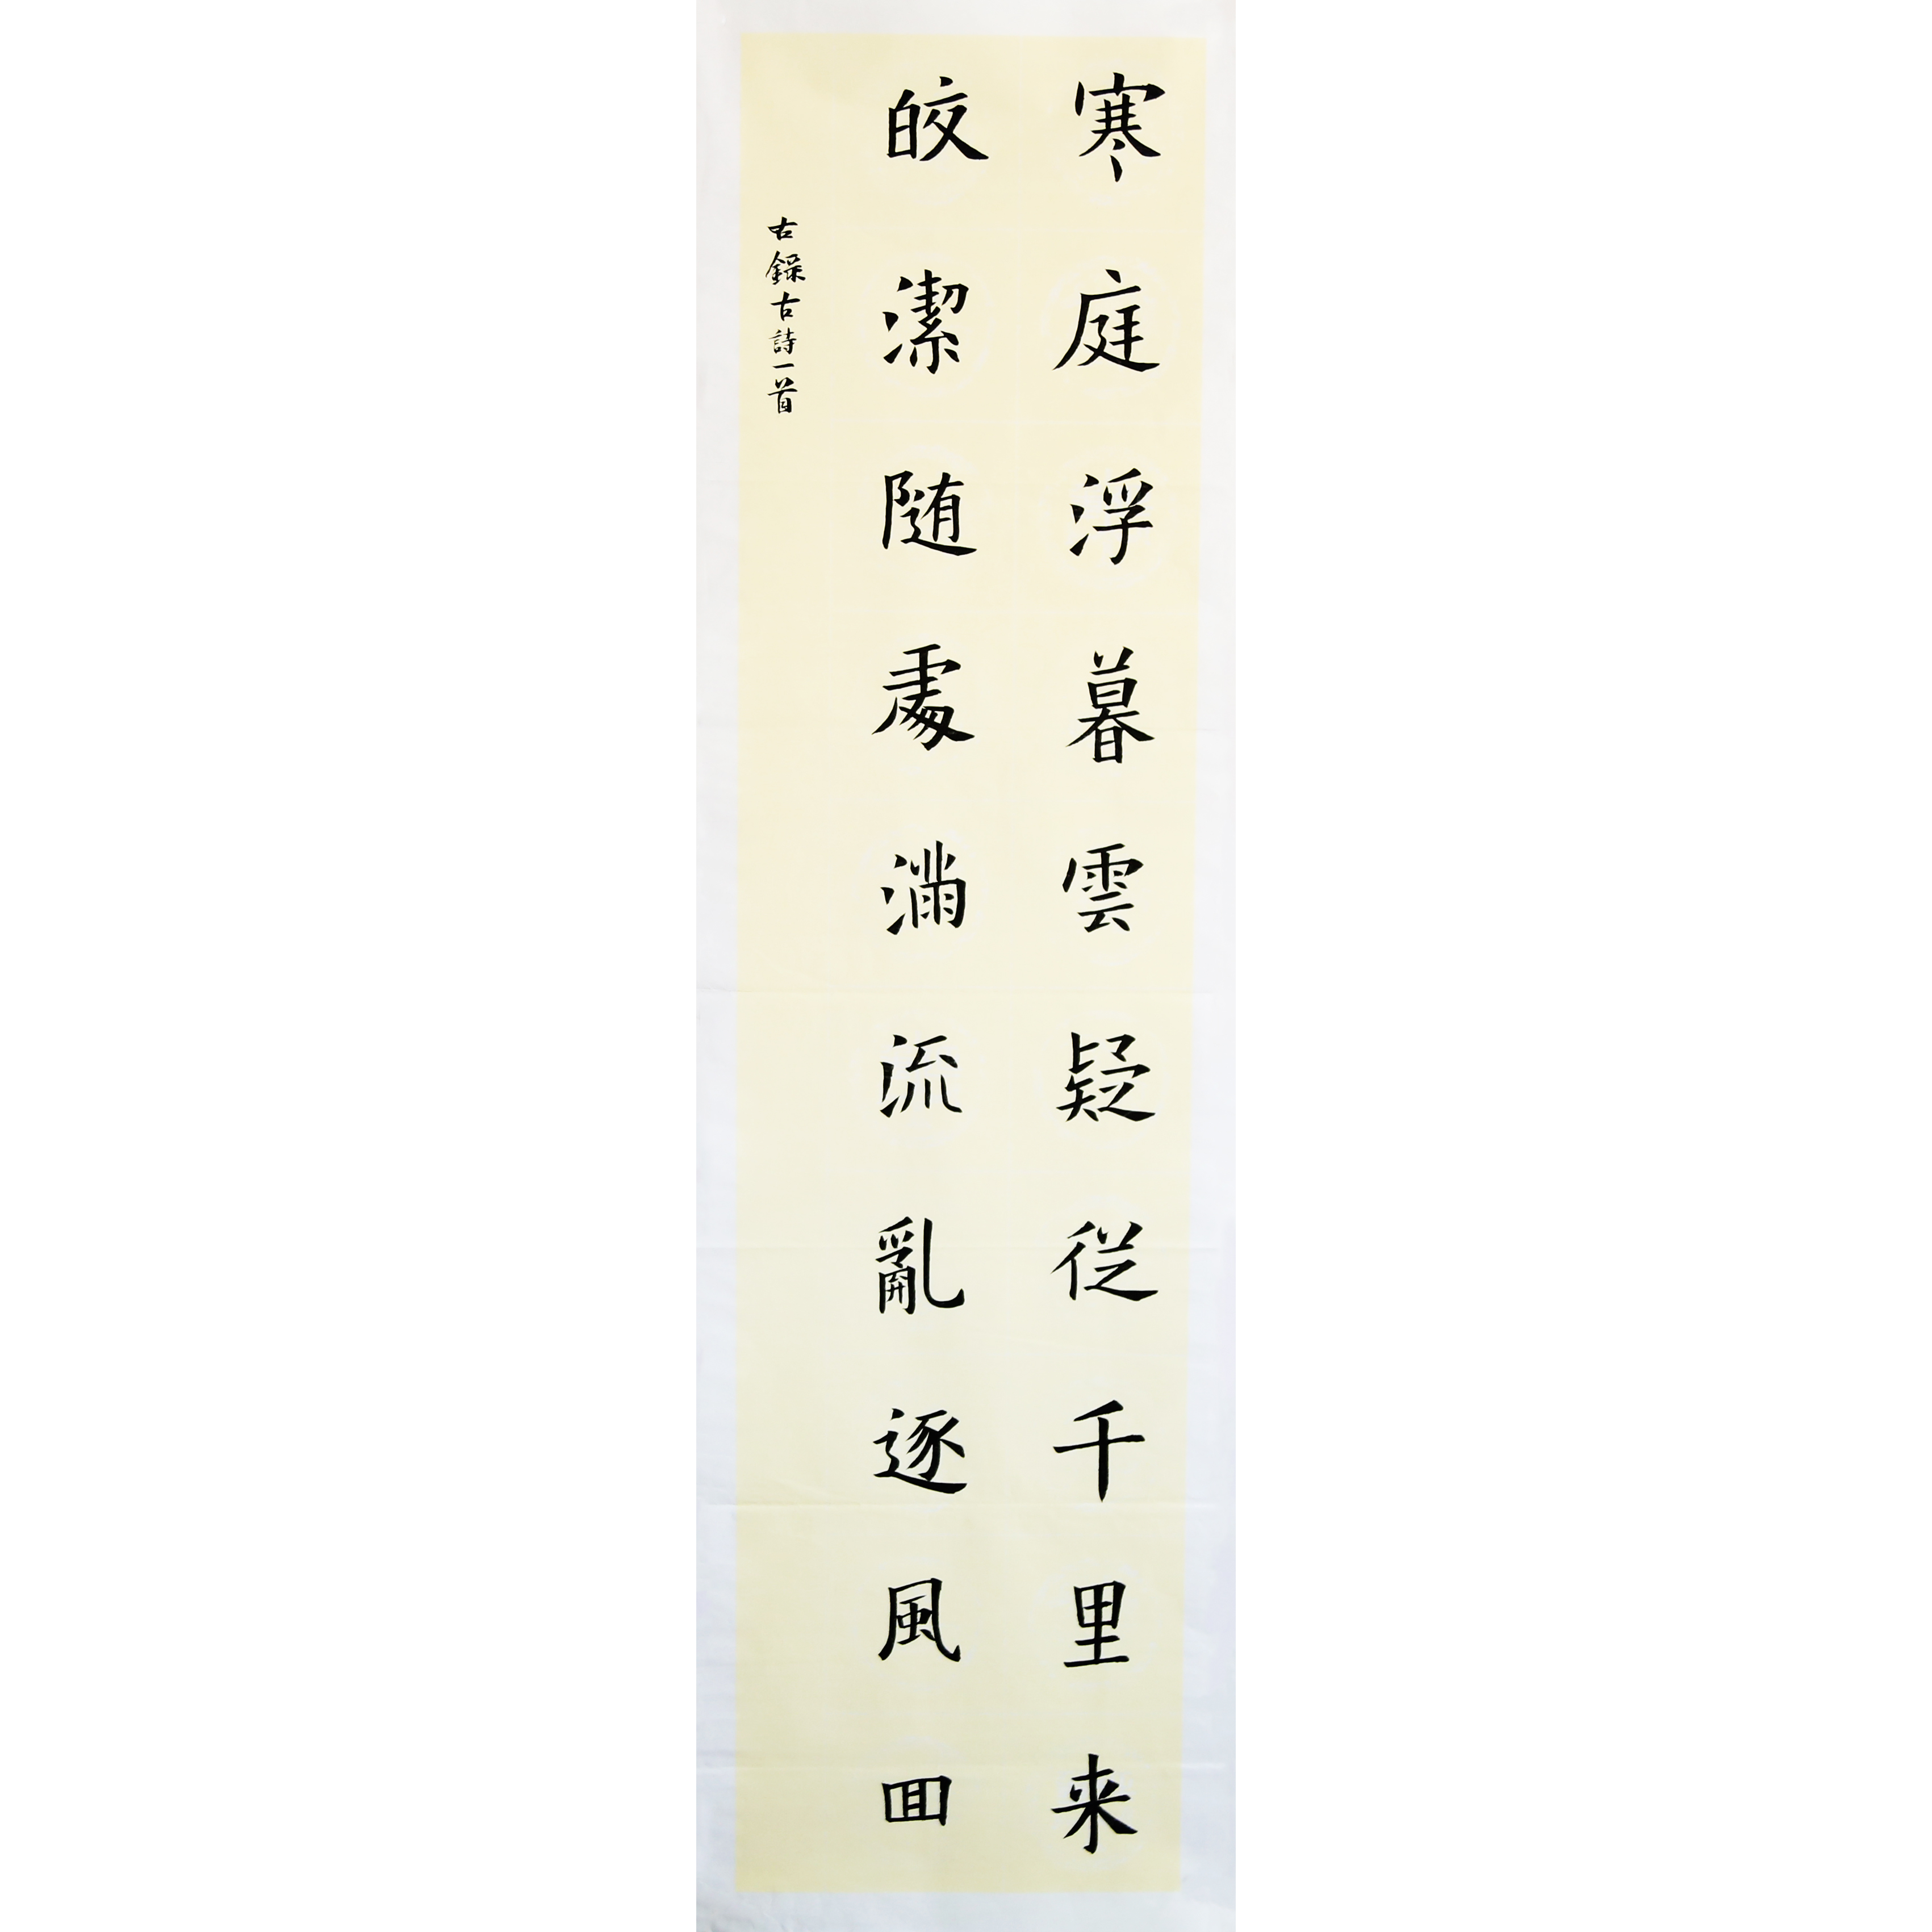 寒庭浮暮雲疑從千里来
皎潔随處滿流亂逐風回
古錄古詩一首